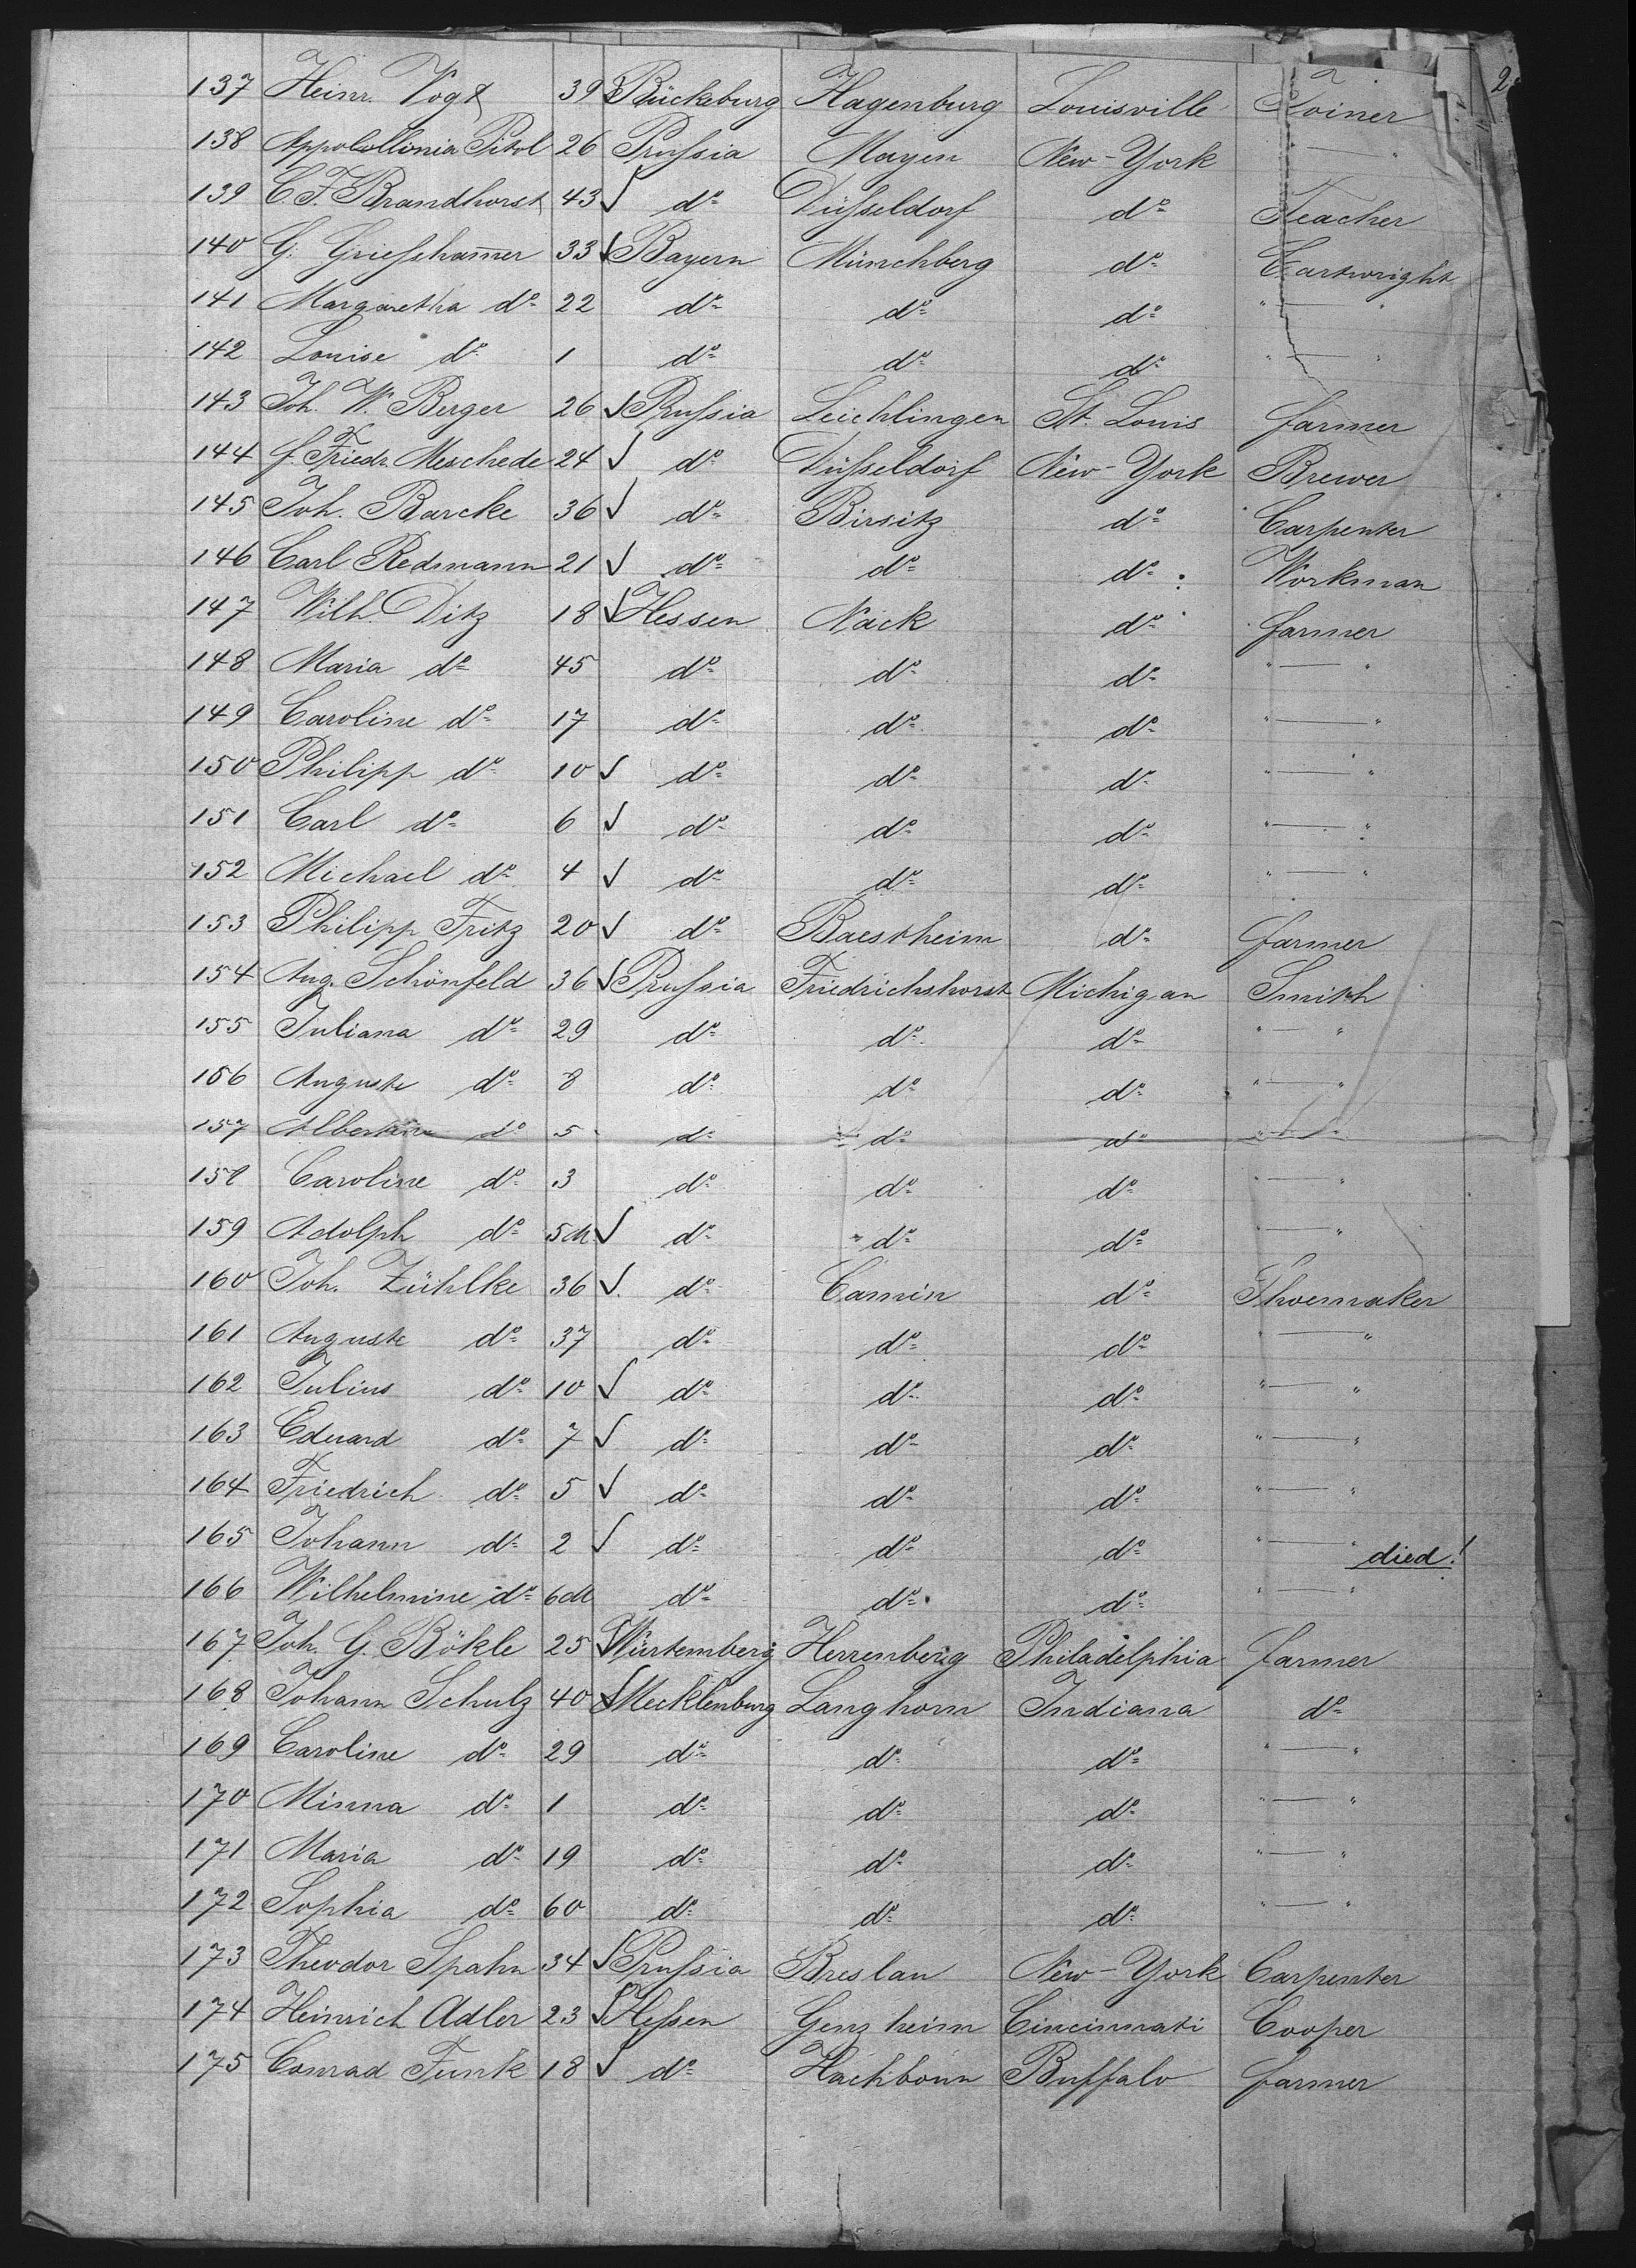 2
137 Heinr. Vogt 39 Bückeburg Hagenburg Louisville Joiner
138 Appolollonia Pitol 26 Prussia Mayen New-York " — "
139 C. F. Brandhorst 43 √ do Düsseldorf do Teacher
140 G. Griesshammer 33 √ Bayern Münchberg do Cartwright
141 Margaretha do 22 do do do " — "
142 Louise do 1 do do do " — "
143 Joh. W. Berger 26 √ Prussia Leichlingen St. Louis farmer
144 f. Friedr. Meschede 24 √ do Düsseldorf New-York Brewer
145 Joh. Barcke 36 √ do Birsitz do Carpenter
146 Carl Redmann 21 √ do do do Workman
147 Wilh. Ditz 18 √ Hessen Nack do farmer
148 Maria do 45 do do do " — "
149 Caroline do 17 do do do " — "
150 Philipp do 10 √ do do do " — "
151 Carl do 6 √ do do do " — "
152 Michael do 4 √ do do do " — "
153 Philipp Fritz 20 √ do Baestheim do farmer
154 Aug. Schönfeld 36 √ Prussia Friedrichshorst Michigan Smith
155 Juliana do 29 do do do " — "
156 Auguste do 8 do do do " — "
157 Albertine do 5 do do do " — "
158 Caroline do 3 do do do " — "
159 Adolph do 5M √ do do do " — "
160 Joh. Zühlke 36 √ do Camin do Shoemaker
161 Auguste do 37 do do do " — "
162 Julius do 10 √ do do do " — "
163 Eduard do 7 √ do do do " — "
164 Friedrich do 5 √ do do do " — "
165 Johann do 2 √ do do do " — " died!
166 Wilhelmine do 6M do do do " — "
167 Joh. G. Bökle 25 √ Würtemberg Herrenberg Philadelphia farmer
168 Johann Schulz 40 √ Mecklenburg Langhorn Indiana do
169 Caroline do 29 do do do " — "
170 Minna do 1 do do do " — "
171 Maria do 19 do do do " — "
172 Sophia do 60 do do do " — "
173 Theodor Spahn 34 √ Prussia Breslau New-York Carpenter
174 Heinrich Adler 23 √ Hessen Genzheim Cincinnati Cooper
175 Conrad Funk 18 √ do Hachborn Buffalo farmer